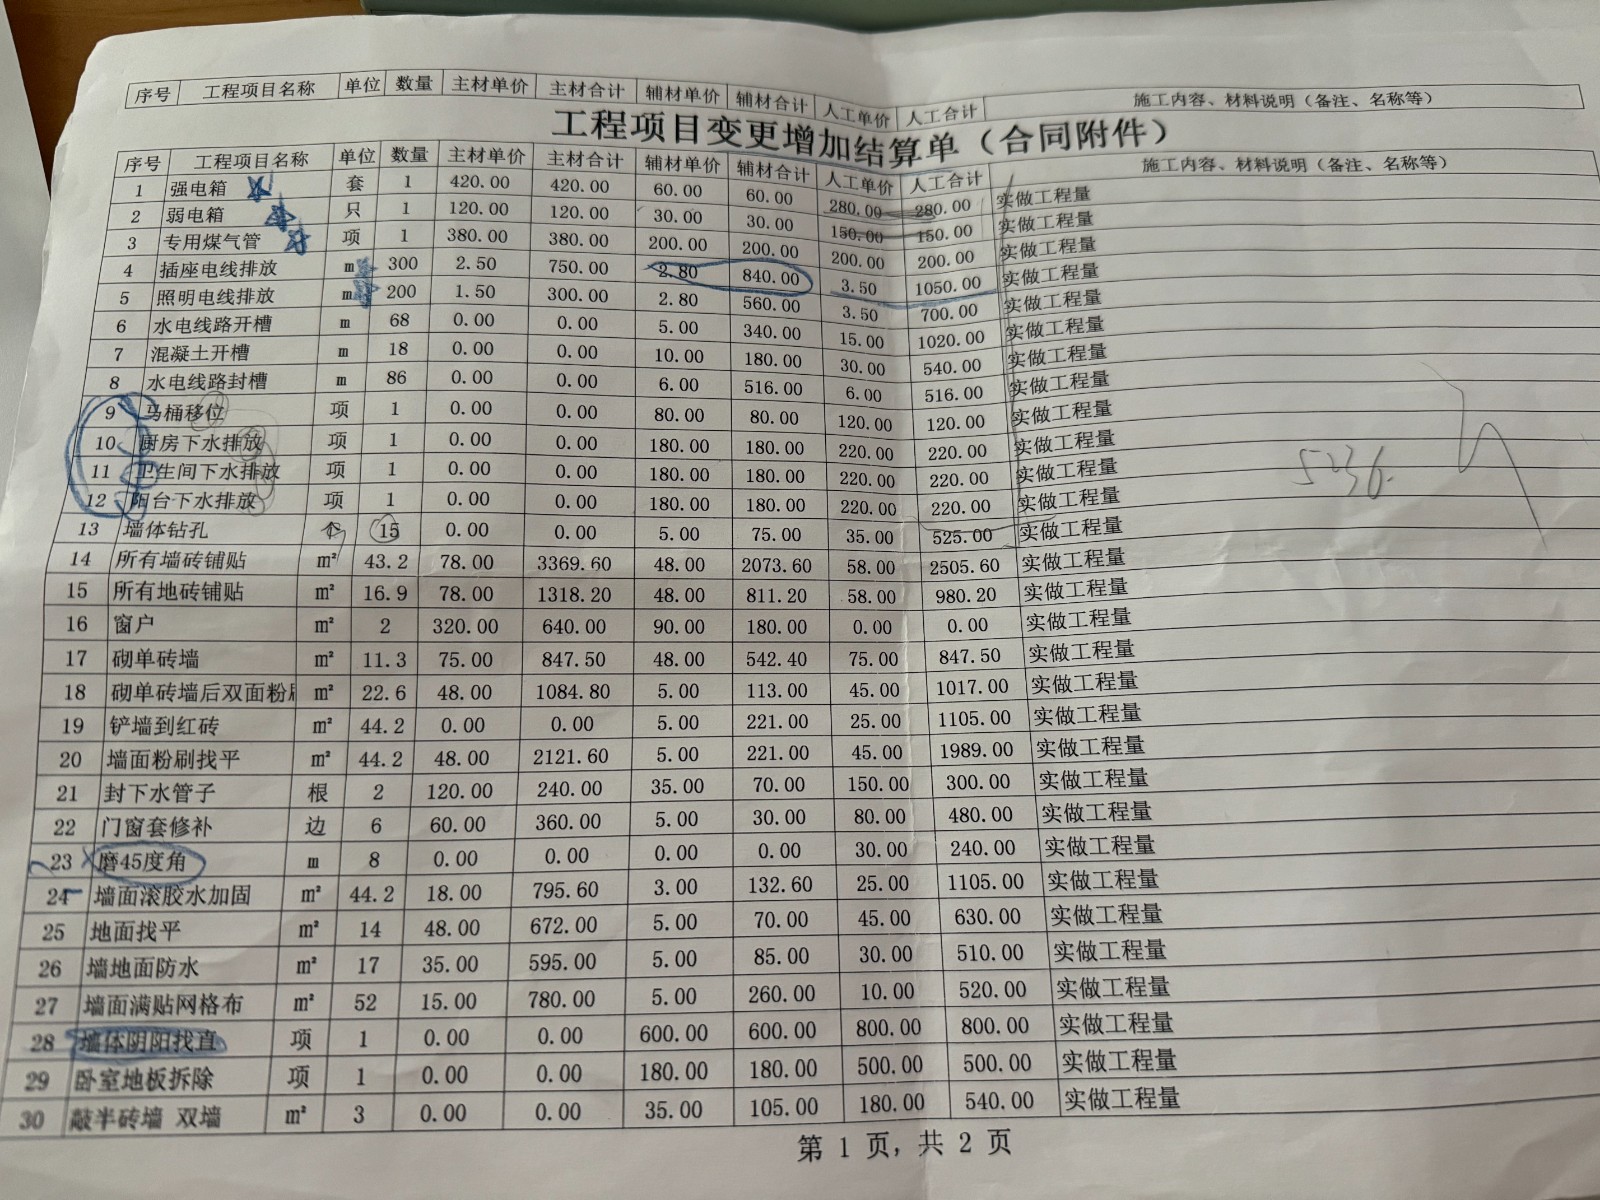 序号 工程项目名称 单位 数量 主材单价 主材合计 辅材单价 辅材合计 人工单价 人工合计 施工内容、材料说明（备注、名称等）
工程项目变更增加结算单（合同附件）
序号 工程项目名称 单位 数量 主材单价 主材合计 辅材单价 辅材合计 人工单价 人工合计 施工内容、材料说明（备注、名称等）
1 强电箱 套 1 420.00 420.00 60.00 60.00 280.00 280.00 实做工程量
2 弱电箱 只 1 120.00 120.00 30.00 30.00 150.00 150.00 实做工程量
3 专用煤气管 项 1 380.00 380.00 200.00 200.00 200.00 200.00 实做工程量
4 插座电线排放 m 300 2.50 750.00 2.80 840.00 3.50 1050.00 实做工程量
5 照明电线排放 m 200 1.50 300.00 2.80 560.00 3.50 700.00 实做工程量
6 水电线路开槽 m 68 0.00 0.00 5.00 340.00 15.00 1020.00 实做工程量
7 混凝土开槽 m 18 0.00 0.00 10.00 180.00 30.00 540.00 实做工程量
8 水电线路封槽 m 86 0.00 0.00 6.00 516.00 6.00 516.00 实做工程量
9 马桶移位 项 1 0.00 0.00 80.00 80.00 120.00 120.00 实做工程量
10 厨房下水排放 项 1 0.00 0.00 180.00 180.00 220.00 220.00 实做工程量
11 卫生间下水排放 项 1 0.00 0.00 180.00 180.00 220.00 220.00 实做工程量
12 阳台下水排放 项 1 0.00 0.00 180.00 180.00 220.00 220.00 实做工程量
5236.
13 墙体钻孔 个 15 0.00 0.00 5.00 75.00 35.00 525.00 实做工程量
14 所有墙砖铺贴 m² 43.2 78.00 3369.60 48.00 2073.60 58.00 2505.60 实做工程量
15 所有地砖铺贴 m² 16.9 78.00 1318.20 48.00 811.20 58.00 980.20 实做工程量
16 窗户 m² 2 320.00 640.00 90.00 180.00 0.00 0.00 实做工程量
17 砌单砖墙 m² 11.3 75.00 847.50 48.00 542.40 75.00 847.50 实做工程量
18 砌单砖墙后双面粉刷 m² 22.6 48.00 1084.80 5.00 113.00 45.00 1017.00 实做工程量
19 铲墙到红砖 m² 44.2 0.00 0.00 5.00 221.00 25.00 1105.00 实做工程量
20 墙面粉刷找平 m² 44.2 48.00 2121.60 5.00 221.00 45.00 1989.00 实做工程量
21 封下水管子 根 2 120.00 240.00 35.00 70.00 150.00 300.00 实做工程量
22 门窗套修补 边 6 60.00 360.00 5.00 30.00 80.00 480.00 实做工程量
23 磨45度角 m 8 0.00 0.00 0.00 0.00 30.00 240.00 实做工程量
24 墙面滚胶水加固 m² 44.2 18.00 795.60 3.00 132.60 25.00 1105.00 实做工程量
25 地面找平 m² 14 48.00 672.00 5.00 70.00 45.00 630.00 实做工程量
26 墙地面防水 m² 17 35.00 595.00 5.00 85.00 30.00 510.00 实做工程量
27 墙面满贴网格布 m² 52 15.00 780.00 5.00 260.00 10.00 520.00 实做工程量
28 墙体阴阳找直 项 1 0.00 0.00 600.00 600.00 800.00 800.00 实做工程量
29 卧室地板拆除 项 1 0.00 0.00 180.00 180.00 500.00 500.00 实做工程量
30 敲半砖墙 双墙 m² 3 0.00 0.00 35.00 105.00 180.00 540.00 实做工程量
第 1 页，共 2 页